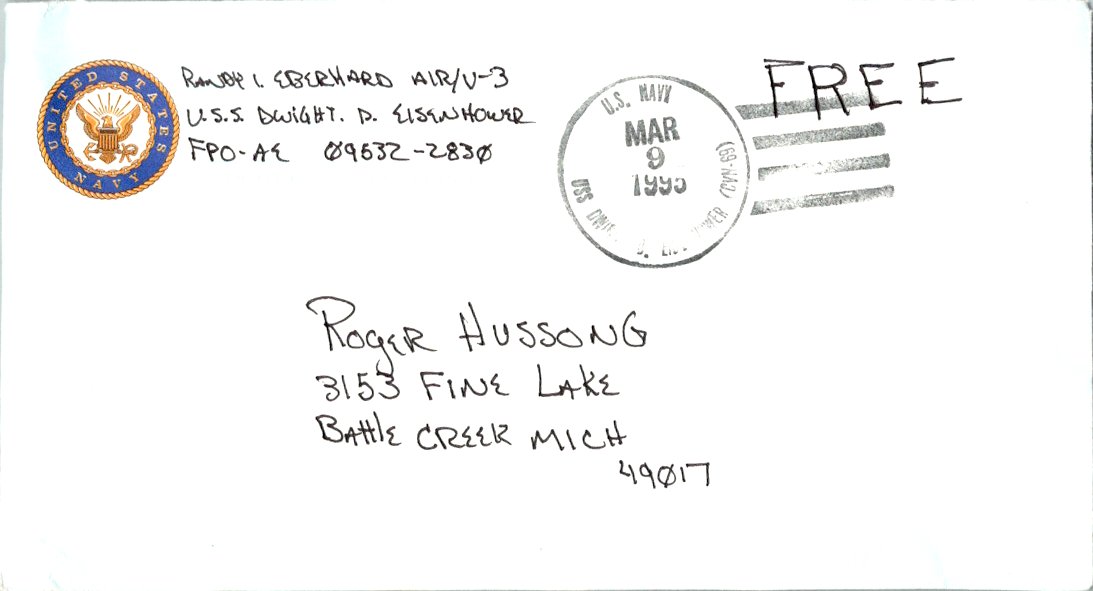 UNITED STATES NAVY
RANDY I. EBERHARD AIR/V-3
U.S.S. DWIGHT. D. EISENHOWER
FPO-AE 09532-2830
U.S. NAVY
MAR
9
1995
USS DWIGHT D. EISENHOWER (CVN-69)
FREE
ROGER HUSSONG
3153 FINE LAKE
BAttlE CREEK MICH
49017